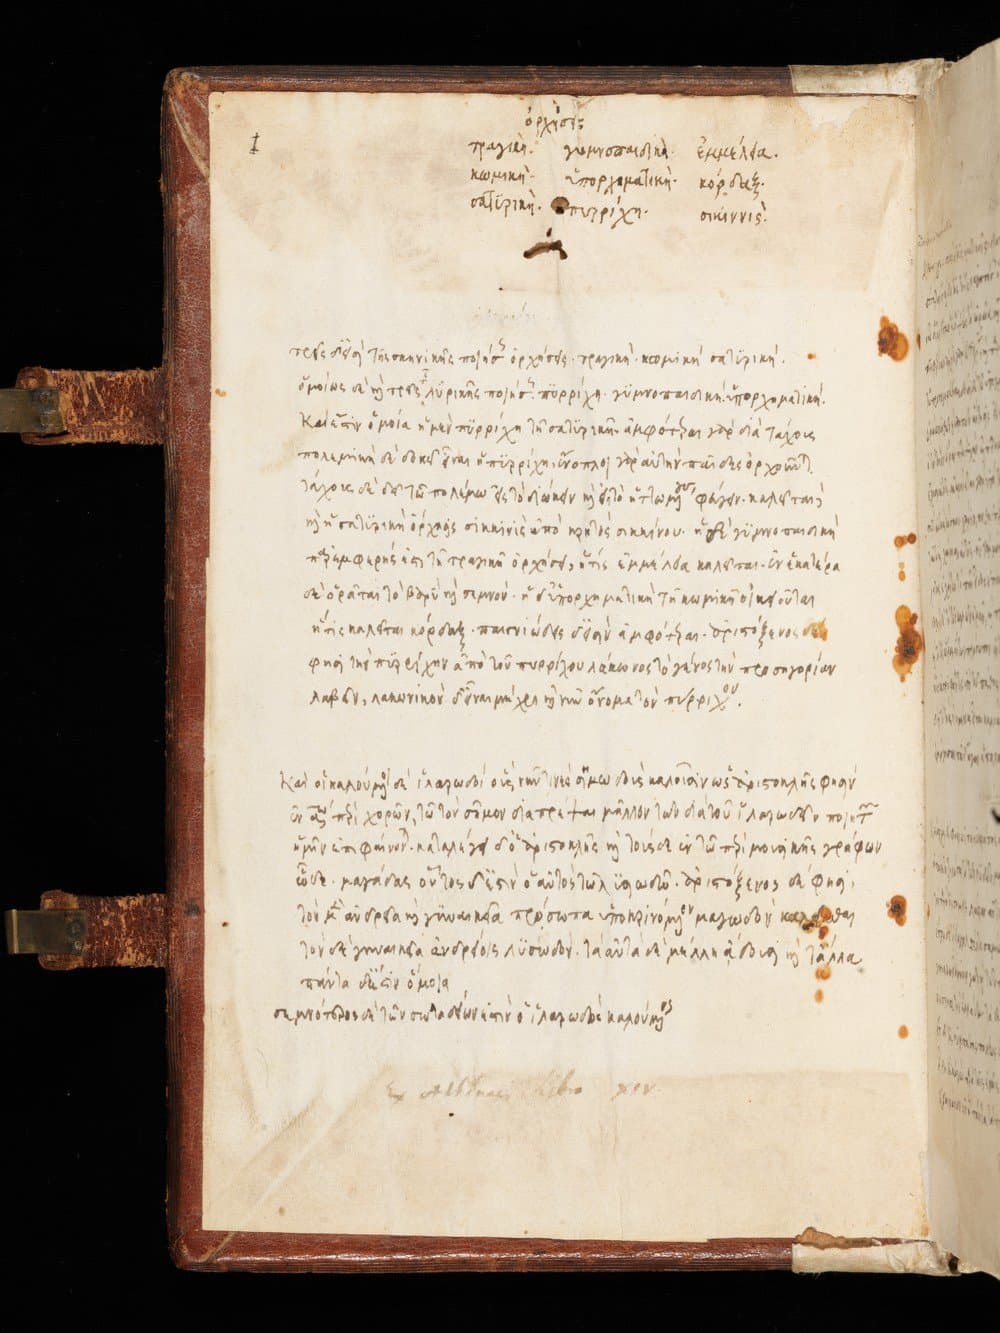 I
ὀρχήσεις
τραγικὴ· γυμνοπαιδικὴ· ἐμμέλεια.
κωμικὴ· ὑπορχηματικὴ· κόρδαξ.
σατυρικὴ· πυρρίχη· σίκιννις.
τρεῖς δ' εἰσὶ τῆς σκηνικῆς ποιήσεως ὀρχήσεις· τραγικὴ· κωμικὴ σατυρική.
ὁμοίως δὲ καὶ τρεῖς τῆς λυρικῆς ποιήσεως· πυρρίχη· γυμνοπαιδική· ὑπορχηματική.
καὶ ἐστὶν ὁμοία ἡ μὲν πυρρίχη τῇ σατυρικῇ· ἀμφότεραι γὰρ διὰ τάχους
πολεμικὴ δὲ δοκεῖ εἶναι ἡ πυρρίχη· ἔνοπλοι γὰρ αὐτὴν παῖδες ὀρχοῦνται.
τάχους δὲ δεῖ τῷ πολέμω εἰς τὸ διώκειν καὶ εἰς τὸ ἡττωμένους φεύγειν· καλεῖται δ'
καὶ ἡ σατυρικὴ ὄρχησις σίκιννις ἀπὸ κρητὸς σικίννου· ἡ δὲ γυμνοπαιδικὴ
παρεμφερής ἐστι τῇ τραγικῇ ὀρχήσει, ἥτις ἐμμέλεια καλεῖται· ἐν ἑκατέρα
δὲ ὁρᾶται τὸ βαρὺ καὶ σεμνόν· ἡ δ' ὑπορχηματικὴ τῇ κωμικῇ οἰκειοῦται
ἥτις καλεῖται κόρδαξ· παιγνιώδεις δ' εἰσὶν ἀμφότεραι· ἀριστόξενος δέ
φησι τὴν πυρρίχην ἀπὸ τοῦ πυρρίχου λάκωνος τὸ γένος τὴν προσηγορίαν
λαβεῖν, λακωνικὸν δ' εἶναι μέχρι καὶ νῦν ὄνομα τὸν πύρριχον.
καὶ οἱ καλούμενοι δὲ ἱλαρωδοί οὓς νῦν τινὲς σιμωδοὺς καλοῦσιν ὡς ἀριστοκλῆς φησὶν
ἐν περὶ χορῶν, τῷ τὸν σῖμον διαπρέψαι μᾶλλον τῶν διὰ τοῦ ἱλαρωδεῖν ποιητῶν
ἡμῖν ἐπιφαίνονται· καταλέγει δ' ὁ ἀριστοκλῆς καὶ τούσδε ἐν τῷ περὶ μουσικῆς γράφων
ὧδε· μαγωδὸς οὗτος δ' ἐστὶν ὁ αὐτὸς τῷ λυσιωδῷ· ἀριστόξενος δέ φησι,
τὸν μὲν ἀνδρεῖα καὶ γυναικεῖα πρόσωπα ὑποκρινόμενον μαγωδὸν καλεῖσθαι
τὸν δὲ γυναικεῖα ἀνδρείοις λυσιωδόν· τὰ αὐτὰ δὲ μέλη ἄδουσι καὶ τἆλλα
πάντα δ' ἐστὶν ὅμοια
σεμνότερος δὲ τῶν τοιούτων ἐστὶν ὁ ἱλαρωδὸς καλούμενος
Ex Athenaei libro xiv